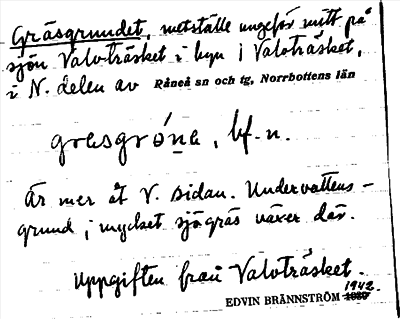 Gräsgrundet, metställe ungefär mitt på
sjön Valvträsket i byn i Valvträsket,
i N. delen av Råneå sn och tg, Norrbottens län
gresgróne, bf. n.
Är mer åt V. sidan. Undervattens-
grund, mycket sjögräs växer där.
Uppgiften från Valvträsket.
EDVIN BRÄNNSTRÖM 1942.